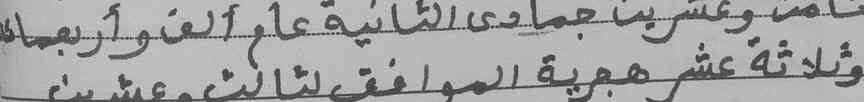 ثامن وعشرين جمادى الثانية عام ألف وأربعمائة
وثلاثة عشر هجرية الموافق لثالث وعشرين